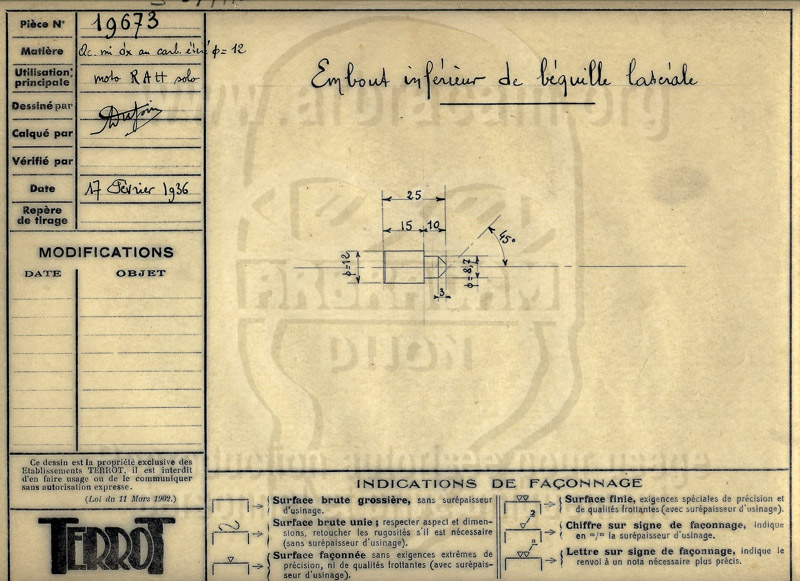 Pièce N° 19673
Matière Ac. mi dx au carb. étiré ϕ= 12
Utilisation principale moto RATT solo
Dessiné par
Calqué par
Vérifié par
Date 17 Février 1936
Repère de tirage
MODIFICATIONS
DATE OBJET
Ce dessin est la propriété exclusive des
Etablissements TERROT, il est interdit
d'en faire usage ou de le communiquer
sans autorisation expresse.
(Loi du 11 Mars 1902.)
TERROT
Embout inférieur de béquille latérale
25
15 10
45°
ϕ=12
ϕ=8,7
3
ARBRACAM
DIJON
INDICATIONS DE FAÇONNAGE
Surface brute grossière, sans surépaisseur
d'usinage.
Surface brute unie ; respecter aspect et dimen-
sions, retoucher les rugosités s'il est nécessaire
(sans surépaisseur d'usinage).
Surface façonnée sans exigences extrêmes de
précision, ni de qualités frottantes (avec surépais-
seur d'usinage).
Surface finie, exigences spéciales de précision et
de qualités frottantes (avec surépaisseur d'usinage).
Chiffre sur signe de faconnage, indique
en "/" la surépaisseur d'usinage.
Lettre sur signe de façonnage, indique le
renvoi à un nota nécessaire plus précis.